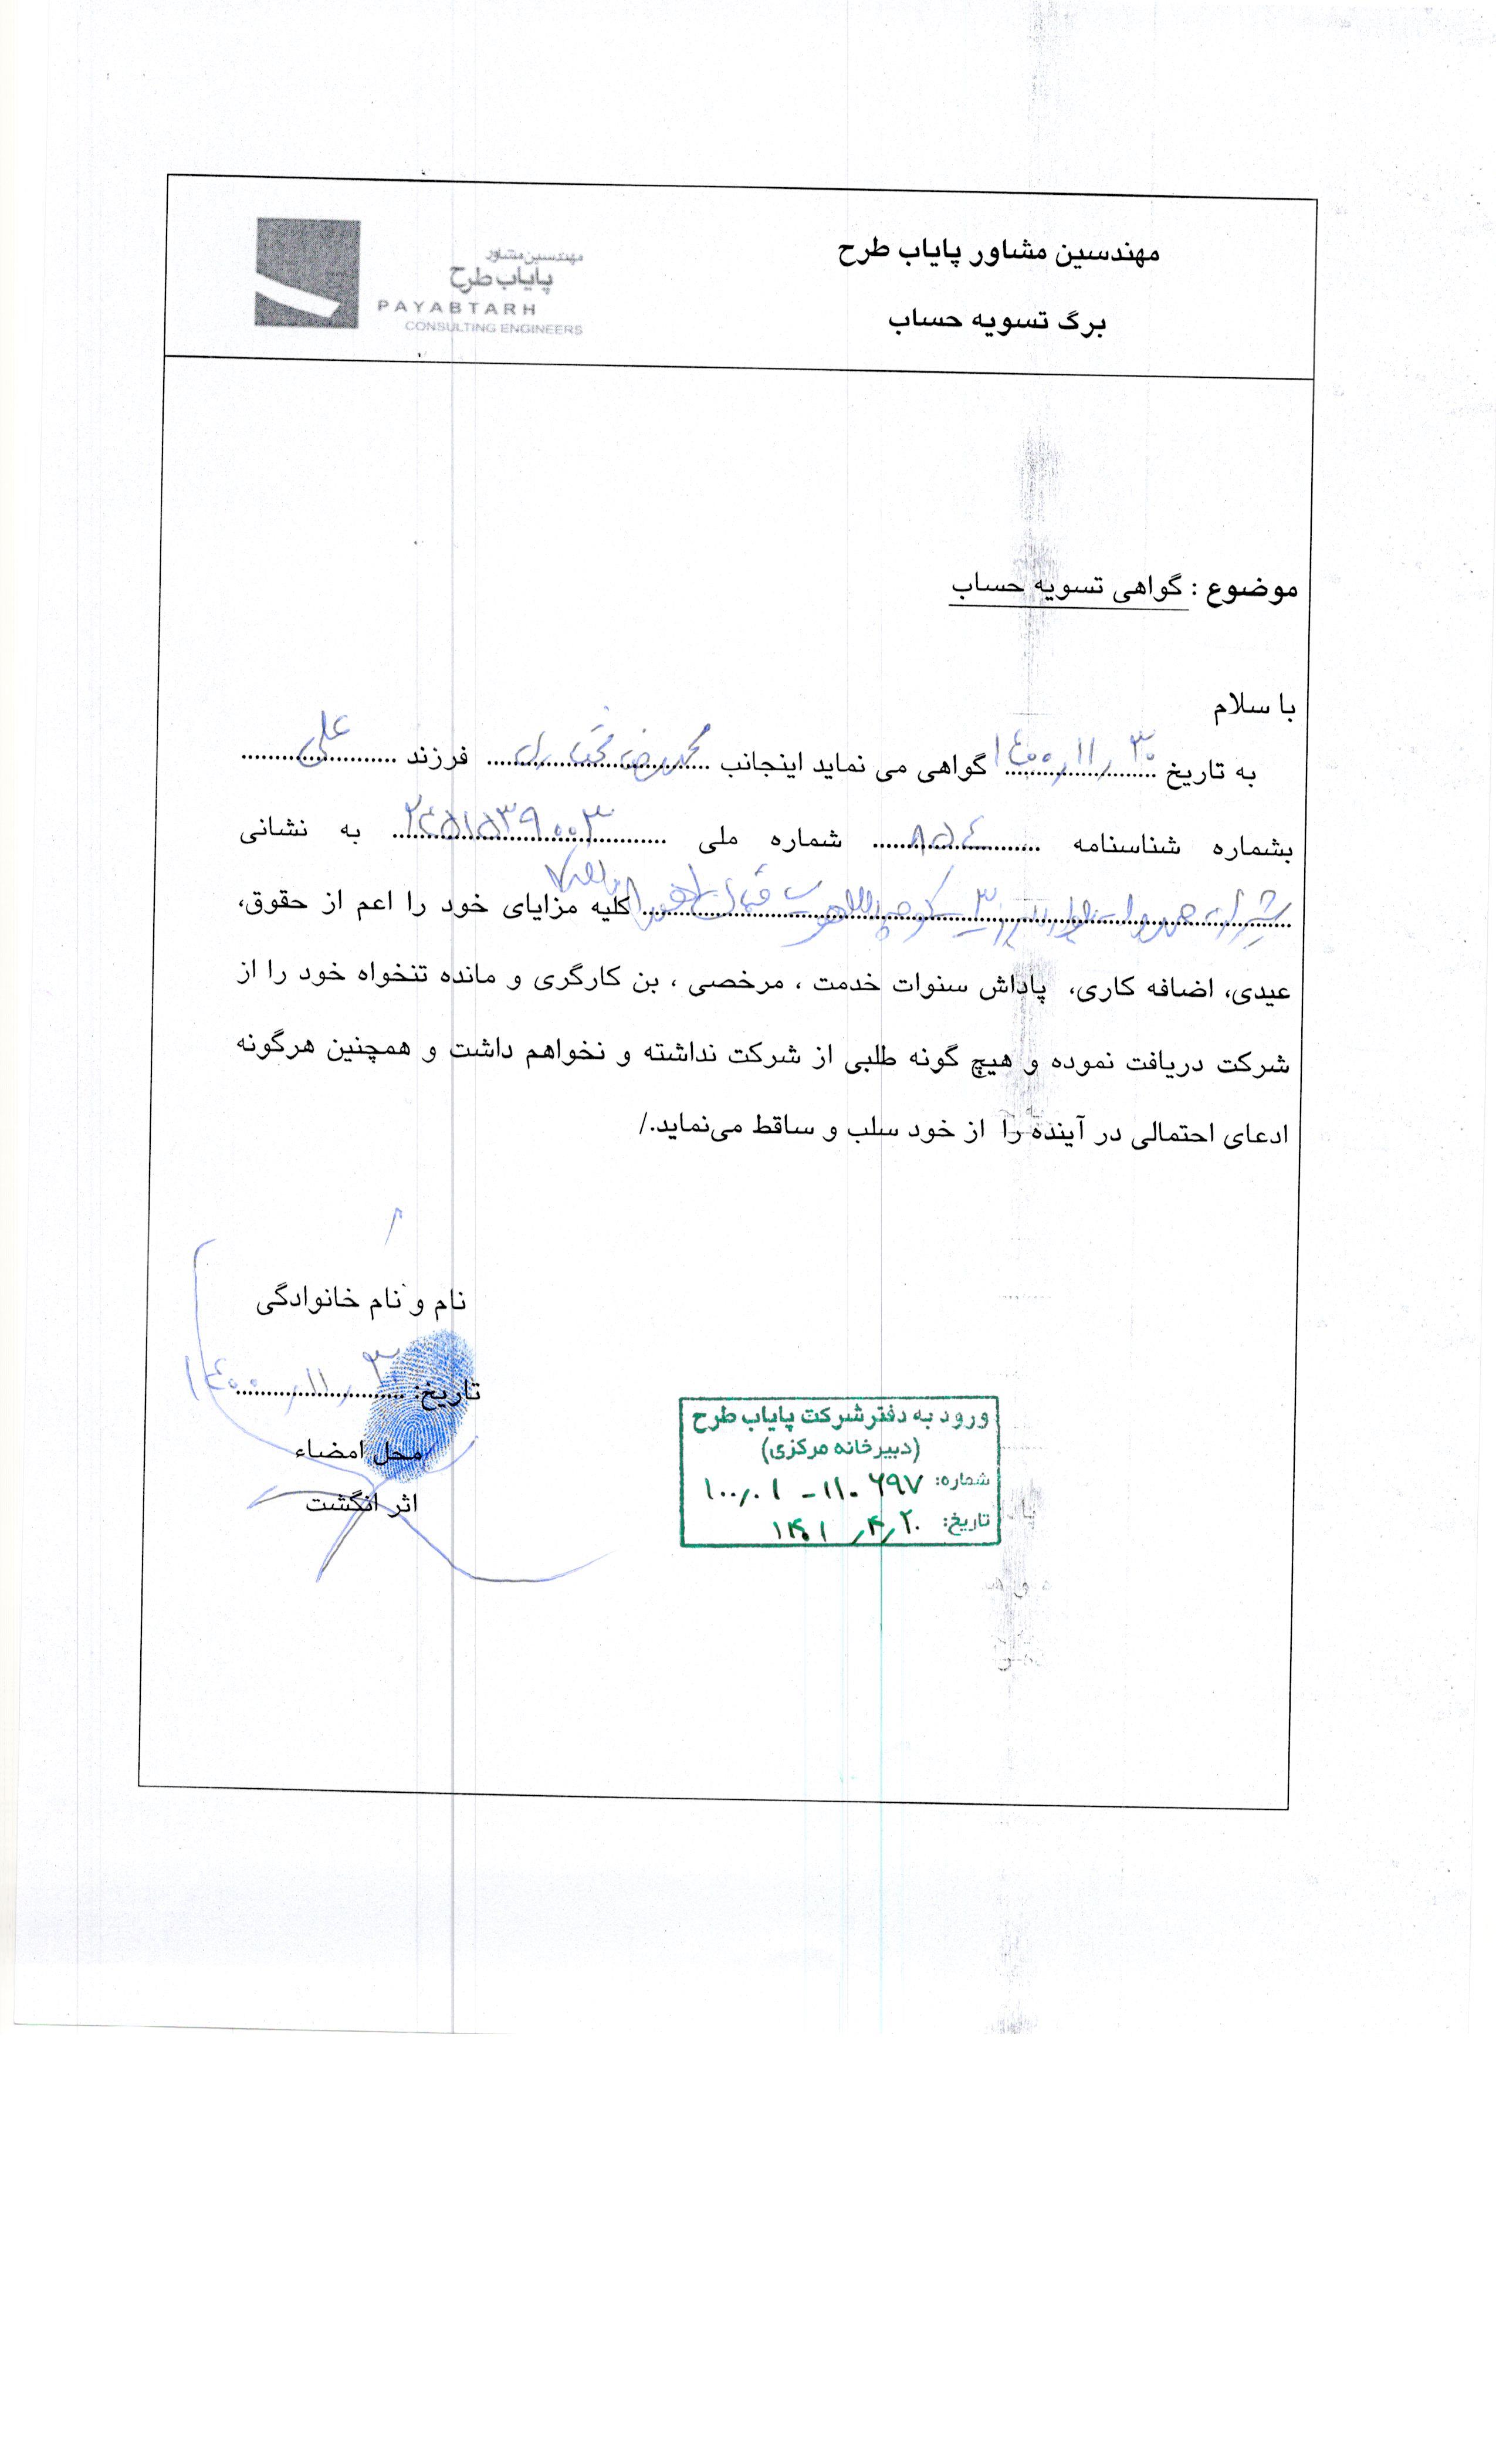 مهندسین مشاور پایاب طرح
برگ تسویه حساب
مهندسین مشاور
پایاب طرح
PAYABTARH
CONSULTING ENGINEERS
موضوع : گواهی تسویه حساب
با سلام
به تاریخ ۱۴۰۰/۱۱/۳۰ گواهی می نماید اینجانب محمدرضا فرزند علی
بشماره شناسنامه ۸۵۴ شماره ملی ۲۴۵۱۵۳۹۰۰۳ به نشانی
شیراز کلیه مزایای خود را اعم از حقوق،
عیدی، اضافه کاری، پاداش سنوات خدمت ، مرخصی ، بن کارگری و مانده تنخواه خود را از
شرکت دریافت نموده و هیچ گونه طلبی از شرکت نداشته و نخواهم داشت و همچنین هرگونه
ادعای احتمالی در آینده را از خود سلب و ساقط می‌نماید./
نام و نام خانوادگی
تاریخ: ۱۴۰۰/۱۱/۳۰
محل امضاء
اثر انگشت
ورود به دفتر شرکت پایاب طرح
(دبیرخانه مرکزی)
شماره: ۱۰۰/۰۱ - ۱۱۰۶۹۷
تاریخ: ۱۴۰۱/۴/۲۰